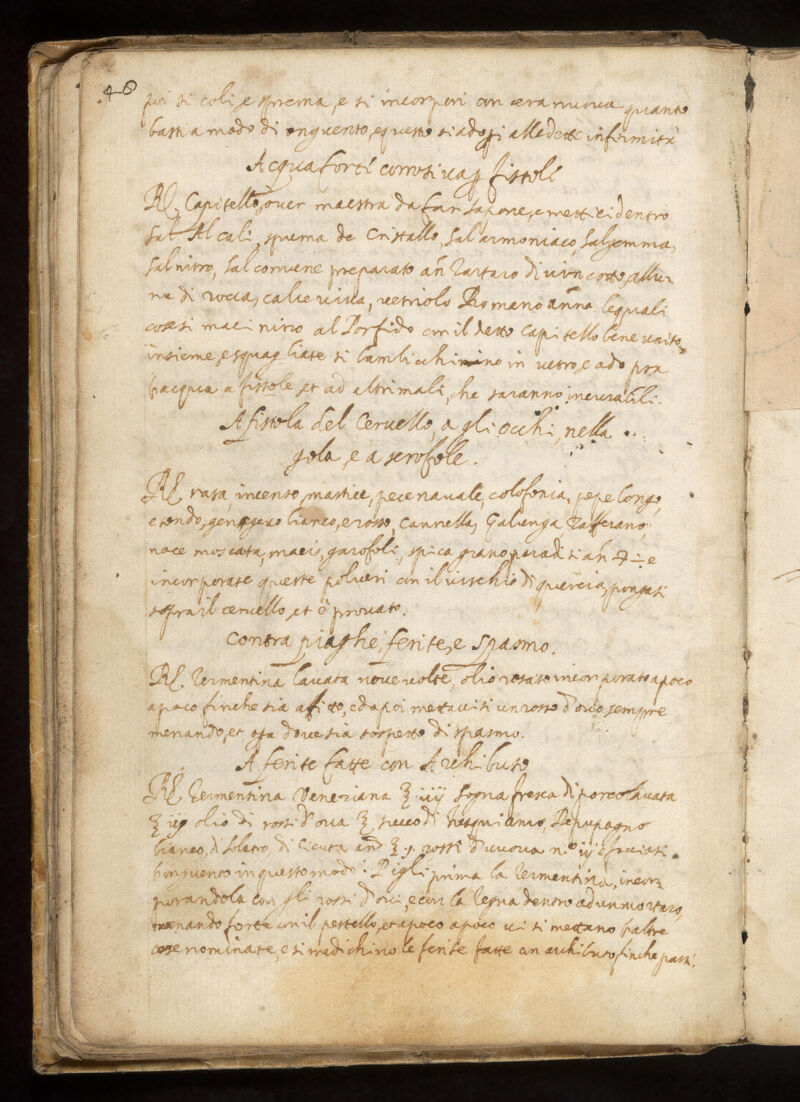 46
poi si coli, e sprema, e si incorpori con cera nuova quanto
basti a modo di onguento, e questo si adopri alle dette infirmità
Acqua forte corrosiva p fistole
R. Capitello, over maestra da far sapone, e metti ci dentro
sal Alcali, spuma de Cristallo, sal armoniaco, salgemma,
salnitro, sal comune preparato añ Tartaro di vin cotto, allu
me di rocca, calce viva, vetriolo Romano anna lequali
cose si macinino al Porfido con il detto capitello bene unito
insieme, e squagliate si lambicchinino in vetro, e adopra
l'acqua a fistole, et ad altri mali, che saranno incurabili.
A fistola del Cervello, a gli occhi, nella
gola, e a scrofole.
R. rasa, incenso, mastice, pece navale, colofonia, pepe longo,
e tondo, gengevo bianco, e rosso, cannella, Galenga Zafferano,
noce moscata, macis, garofoli, spica grano paradisi añ
incorporate queste polveri con il vischio di quercia, pongasi
sopra il cervello, et è provato.
Contra piaghe, ferite, e Spasmo.
R. Termentina lavata nove volte, olio rosato incorporato a poco
a poco finche sia affitto, e dapoi mettavisi un rosso d'ovo sempre
menando, et dove sia sospetto di spasmo.
A ferite fatte con Archibuso
R. Termentina Veneziana ℥ iiij Sogna fresca di porco lavata
℥ iij olio di rossi d'ova ℥ succo di Iusquiamo, De papagno
bianco, di Solatro, di Cicuta anã ℥ j. rossi d'uuova n.º ij e facciasi
l'onguento in questo modo: Pigli prima la Termentina, incor
porandola con gli rossi d'ovi, e con la Sogna dentro ad un mortaro,
menando forte con il pestello, et a poco a poco vi si mettano l'altre
cose nominate, e si medichino le ferite fatte con archibuso finche